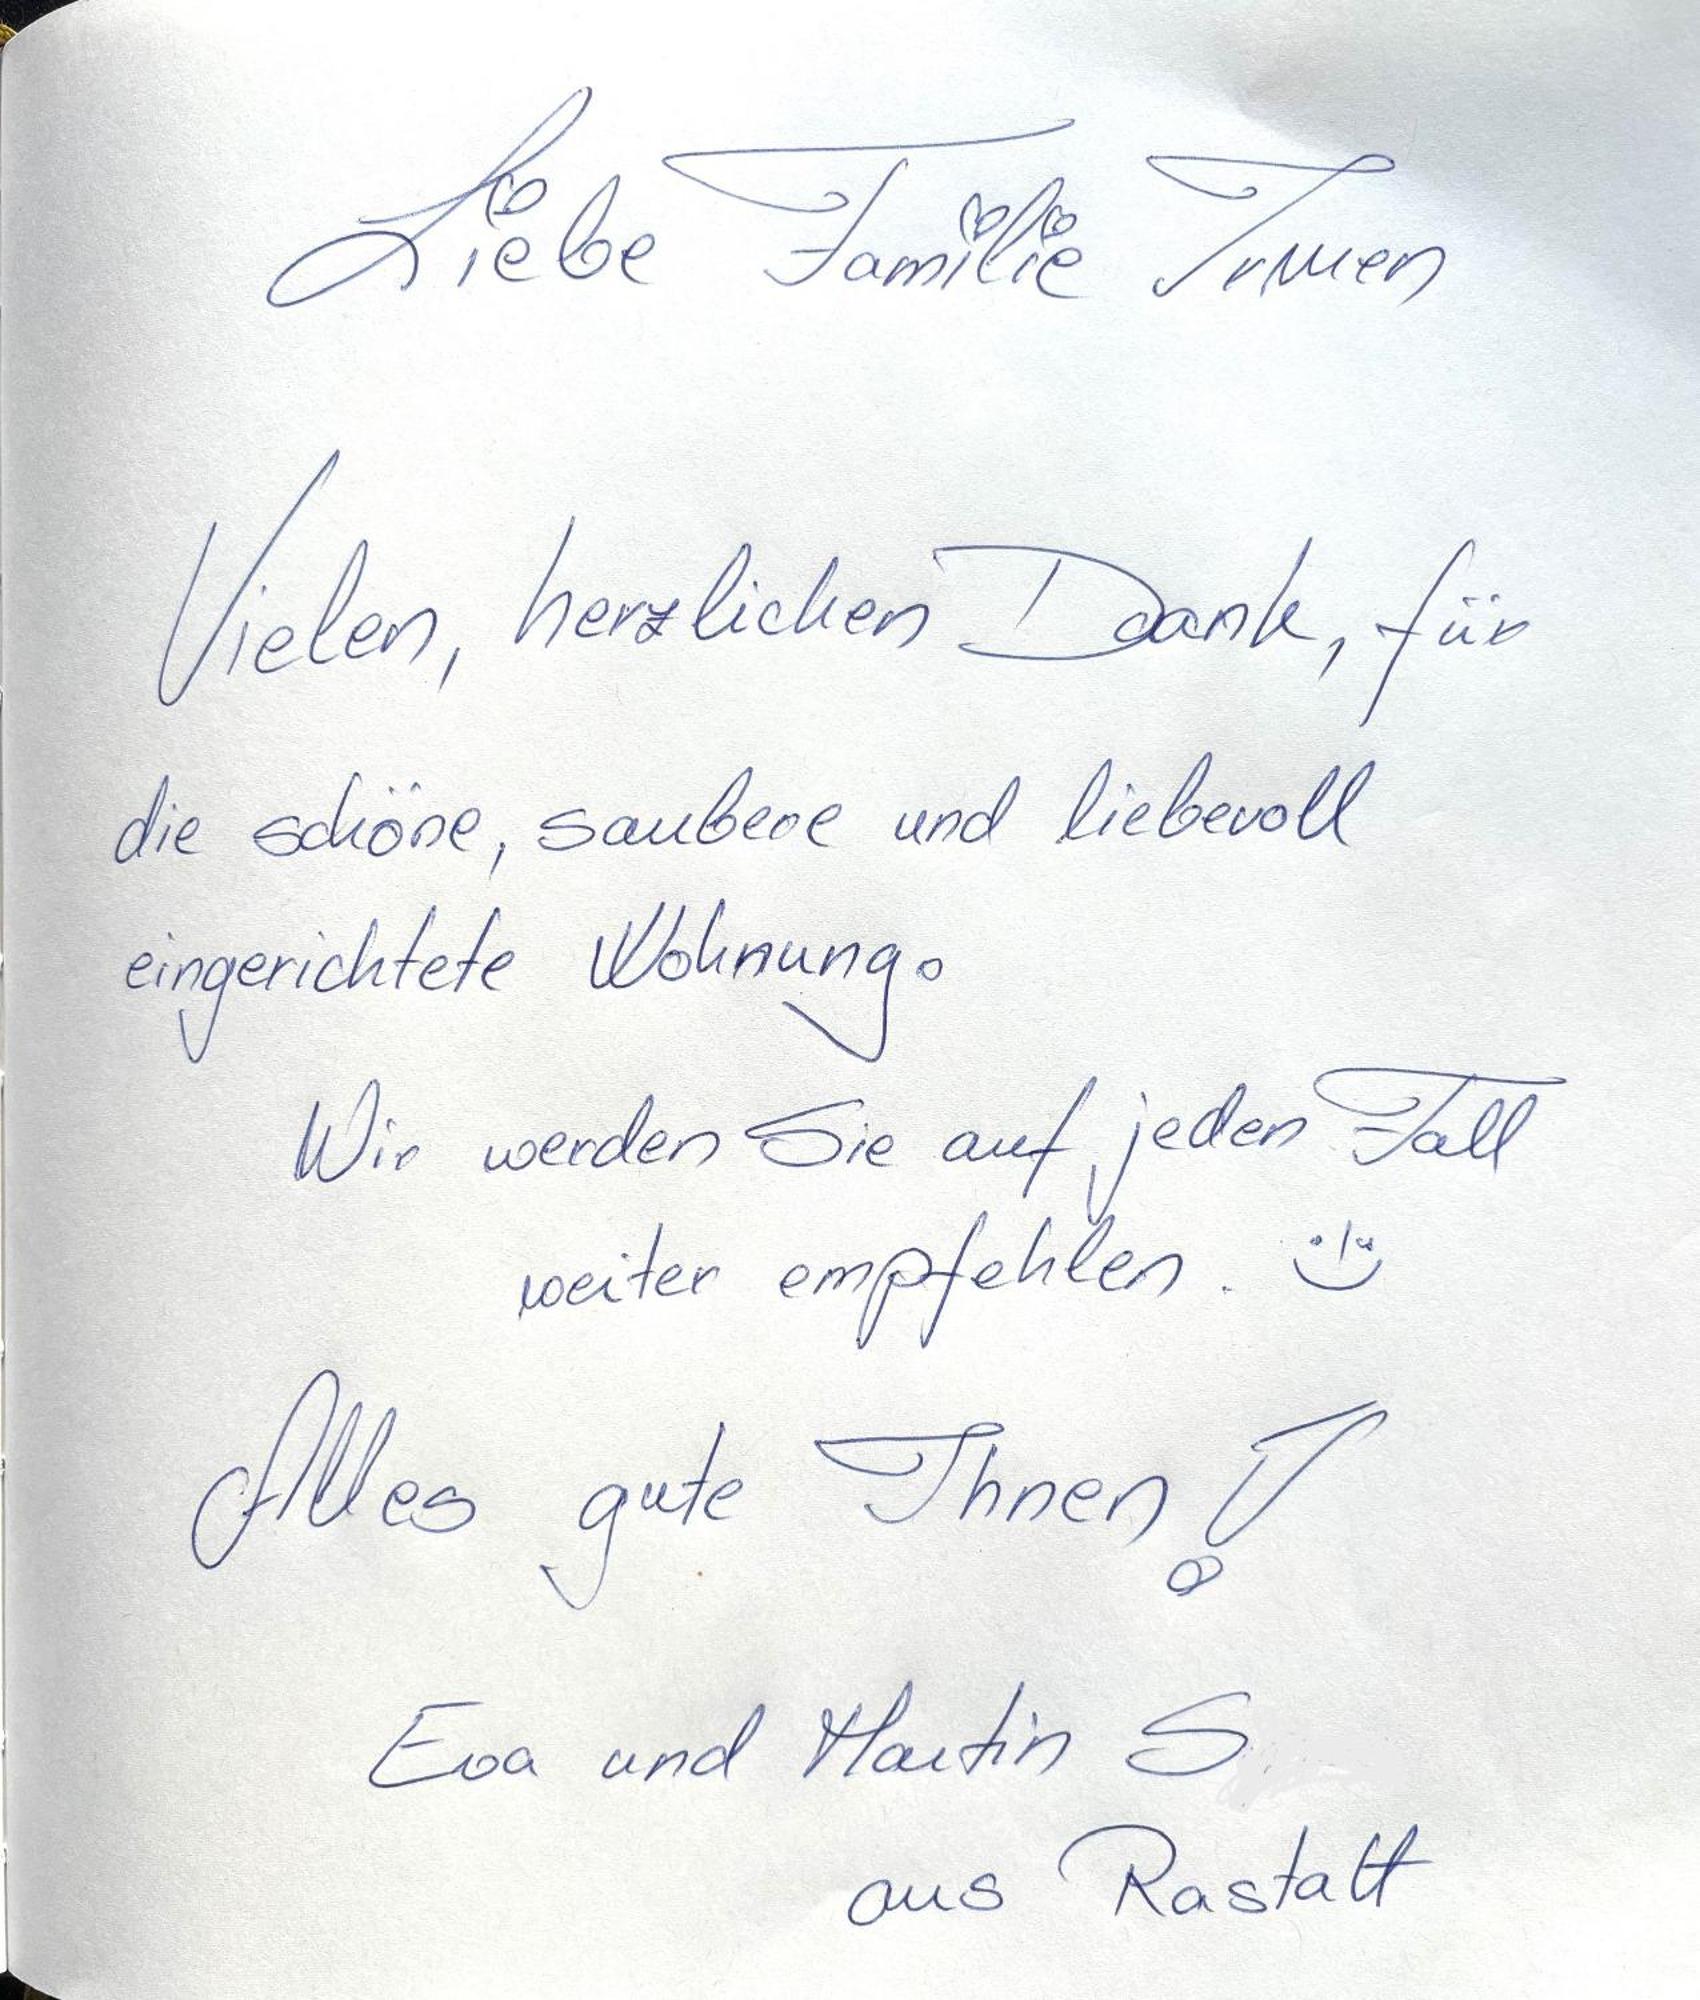 Liebe Familie
Vielen, herzlichen Dank, für
die schöne, saubere und liebevoll
eingerichtete Wohnung.
Wir werden Sie auf jeden Fall
weiter empfehlen.
Alles gute Ihnen!
Eva und Martin S
aus Rastatt